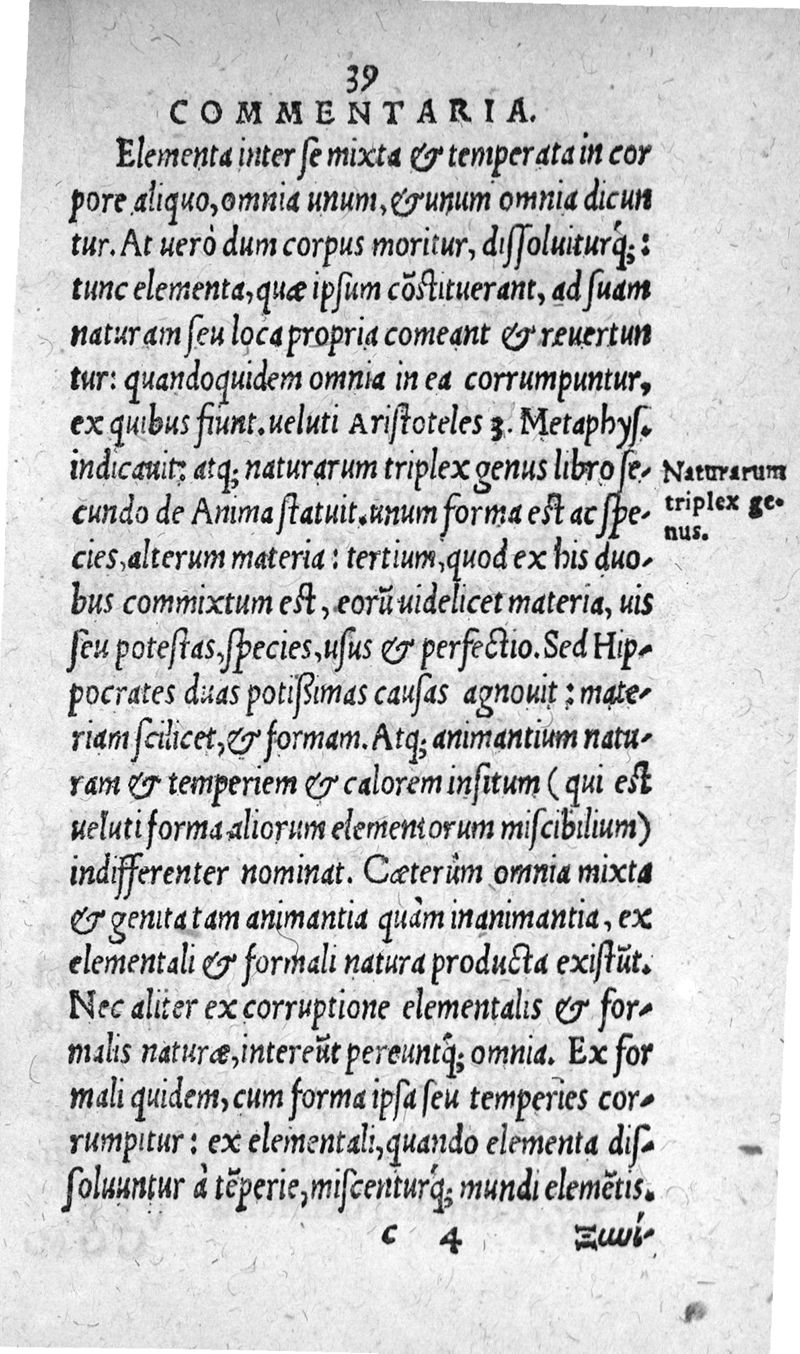 39
COMMENTARIA.
Elementa inter ſe mixta & temperata in cor
pore aliquo, omnia unum, & unum omnia dicun
tur. At uerò dum corpus moritur, diſſoluiturq́;:
tunc elementa, quæ ipſum cõſtituerant, ad ſuam
naturam ſeu loca propria comeant & reuertun
tur: quandoquidem omnia in ea corrumpuntur,
ex quibus fiunt. ueluti Ariſtoteles 3. Metaphyſ.
indicauit: atq; naturarum triplex genus libro ſe-
cundo de Anima ſtatuit. unum forma eſt ac ſpe-
cies, alterum materia: tertium, quod ex his duo-
bus commixtum eſt, eorũ uidelicet materia, uis
ſeu poteſtas, ſpecies, uſus & perfectio. Sed Hip-
pocrates duas potißimas cauſas agnouit: mate-
riam ſcilicet, & formam. Atq; animantium natu-
ram & temperiem & calorem inſitum (qui eſt
ueluti forma aliorum elementorum miſcibilium)
indifferenter nominat. Cæterùm omnia mixta
& genita tam animantia quàm inanimantia, ex
elementali & formali natura producta exiſtũt.
Nec aliter ex corruptione elementalis & for-
malis naturæ, intereũt pereuntq́; omnia. Ex for
mali quidem, cum forma ipſa ſeu temperies cor-
rumpitur: ex elementali, quando elementa diſ-
ſoluuntur à tẽperie, miſcenturq́; mundi elemẽtis.
c 4 Ξυνί-
Naturarum
triplex ge-
nus.